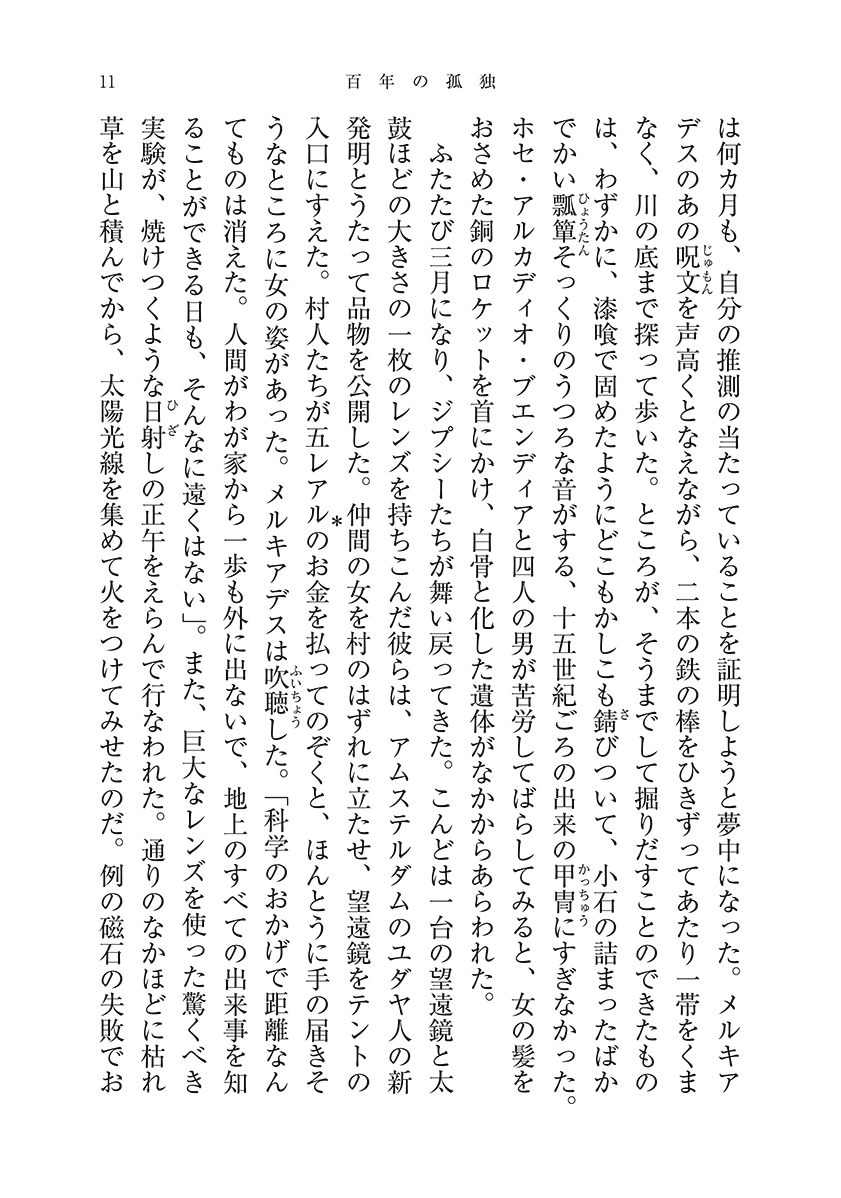 11
百年の孤独
は何カ月も、自分の推測の当たっていることを証明しようと夢中になった。メルキア
デスのあの呪文を声高くとなえながら、二本の鉄の棒をひきずってあたり一帯をくま
じゅもん
なく、川の底まで探って歩いた。ところが、そうまでして掘りだすことのできたもの
は、わずかに、漆喰で固めたようにどこもかしこも錆びついて、小石の詰まったばか
さ
でかい瓢簞そっくりのうつろな音がする、十五世紀ごろの出来の甲冑にすぎなかった。
ひょうたん
かっちゅう
ホセ・アルカディオ・ブエンディアと四人の男が苦労してばらしてみると、女の髪を
おさめた銅のロケットを首にかけ、白骨と化した遺体がなかからあらわれた。
ふたたび三月になり、ジプシーたちが舞い戻ってきた。こんどは一台の望遠鏡と太
鼓ほどの大きさの一枚のレンズを持ちこんだ彼らは、アムステルダムのユダヤ人の新
発明とうたって品物を公開した。仲間の女を村のはずれに立たせ、望遠鏡をテントの
入口にすえた。村人たちが五レアル*のお金を払ってのぞくと、ほんとうに手の届きそ
うなところに女の姿があった。メルキアデスは吹聴した。「科学のおかげで距離なん
ふいちょう
てものは消えた。人間がわが家から一歩も外に出ないで、地上のすべての出来事を知
ることができる日も、そんなに遠くはない」。また、巨大なレンズを使った驚くべき
実験が、焼けつくような日射しの正午をえらんで行なわれた。通りのなかほどに枯れ
ひざ
草を山と積んでから、太陽光線を集めて火をつけてみせたのだ。例の磁石の失敗でお